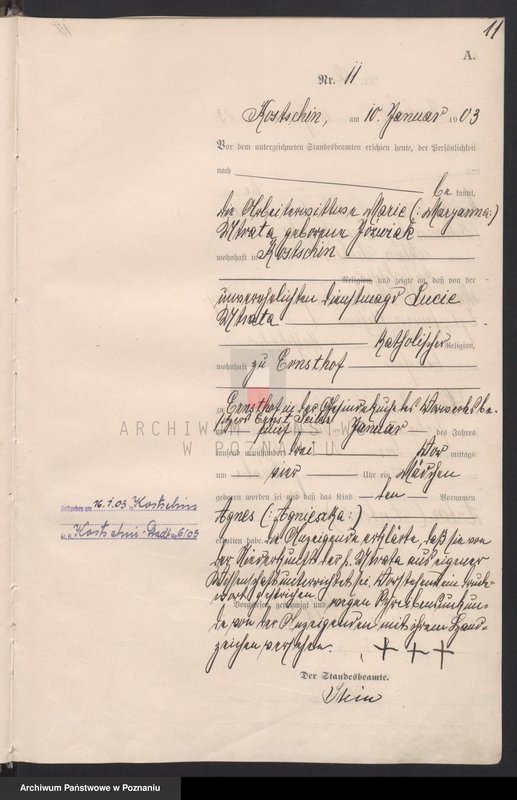 11
A.
Nr. 11
Kostschin, am 10. Januar 1903
Vor dem unterzeichneten Standesbeamten erschien heute, der Persönlichkeit
nach
be kannt,
die Arbeiterwittwe Marie (: Maryanna :)
Utrata geborene Jozwiak
wohnhaft in Kostschin
Religion, und zeigte an, daß von der
unverehelichten Dienstmagd Lucie
Utrata
katholischer Religion,
wohnhaft zu Ernsthof
zu Ernsthof in der des Vorwerksbe-
sitzers Ernst
am Januar des Jahres
tausend neunhundert drei Vor mittags
um vier Uhr ein Mädchen
geboren worden sei und daß das Kind den Vornamen
Agnes (: Agnieszka :)
erhalten habe. Die Anzeigende erklärte, daß sie von
der Niederkunft der p. Utrata aus eigener
Wissenschaft unterrichtet sei. Vorstehend ein Druck-
wort gestrichen.
Vorgelesen, genehmigt und wegen Schreibensunkun-
de von der Anzeigenden mit ihrem Hand-
zeichen versehen. + + +
Der Standesbeamte.
Stein
Gestorben am 16.1.03 in Kostschin
Kostschin Stadt 6/03
ARCHIWUM PAŃSTWOWE
W POZNANIU
Archiwum Państwowe w Poznaniu